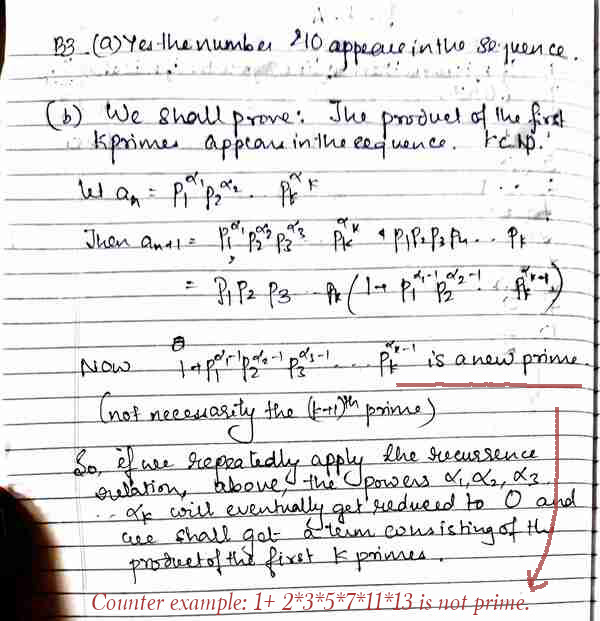 B3 (a) Yes the number 210 appears in the sequence.
(b) We shall prove: The product of the first
k primes appears in the sequence. k∈N.
Let aₙ = p₁^α₁ p₂^α₂ .. pₖ^αₖ
Then aₙ₊₁ = p₁^α₁ p₂^α₂ p₃^α₃ pₖ^αₖ + p₁p₂p₃p₄... pₖ
= p₁p₂ p₃ .. pₖ (1+ p₁^α₁-1 p₂^α₂-1 .. pₖ^αₖ-1)
Now 1+p₁^α₁-1 p₂^α₂-1 p₃^α₃-1 .... pₖ^αₖ-1 is a new prime.
(not necessarity the (k+1)th prime)
So, if we repeatedly apply the recurssence
relation, above, the powers α₁, α₂, α₃..
.. αₖ will eventually get reduced to 0 and
we shall get a term consisting of the
product of the first k primes.
Counter example: 1+ 2*3*5*7*11*13 is not prime.